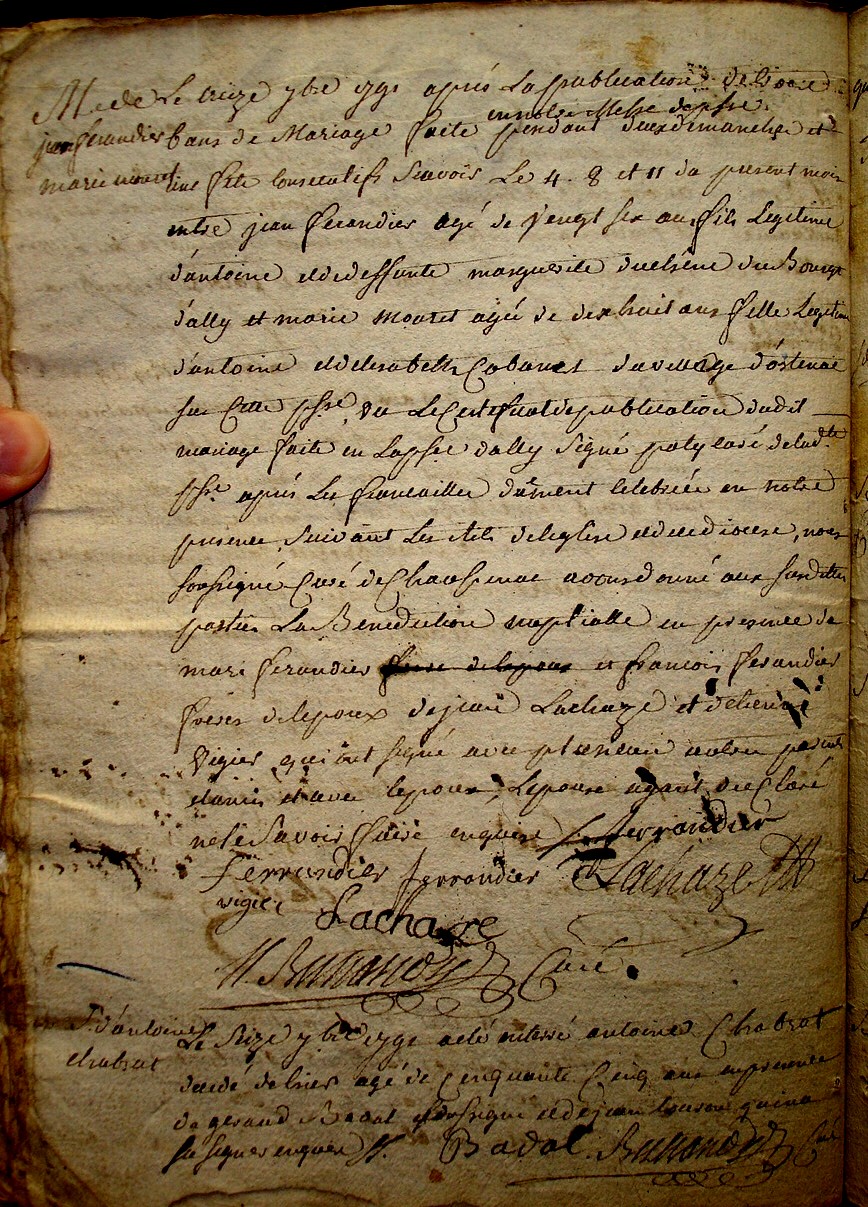 M. de
jean ferandier
marie mouret
Le treize 7bre 1791 après La publication de trois
bans de Mariage faite en notre Messe de psse pendant deux dimanches et
une fête consecutifs Scavoir Le 4. 8 et 11 du present mois
entre jean ferandier agé de vingt six ans fils Legitime
d'antoine et de deffunte marguerite duchêne du Bourg
d'ally et marie mouret agée de dix huit ans fille Legitime
d'antoine et d'elisabeth Cabanet du village d'ostenac
sur Cette psse vu Le Certificat de publication dudit
mariage faite en La psse d'ally Signé curé de lad.te
psse après Les fiancailles dûment Celebrées en notre
presence Suivant Les rits de l'eglise et de ce diocese, nous
soussigné Curé de Chaussenac avons donné aux susdittes
parties La Benediction nuptialle en presence de
mari ferandier frere de lepoux et francois ferandier
freres de lepoux de jean Lachaze et d'etienne
vigier qui ont signé avec plusieurs autres parents
et amis et avec lepoux, Lepouse ayant declaré
ne le Savoir faire enquise ferrandier
ferrandier ferrandier Lachaze
vigier Lachaze
Curé.
S. d'antoine
chabrat
Le Seize 7bre 1791 a eté enterré antoine Chabrat
decédé de hier agé de Cenquante Cenq ans en presence
de geraud Badal soussigné et de jean qui na
su signer enquis Badal Curé